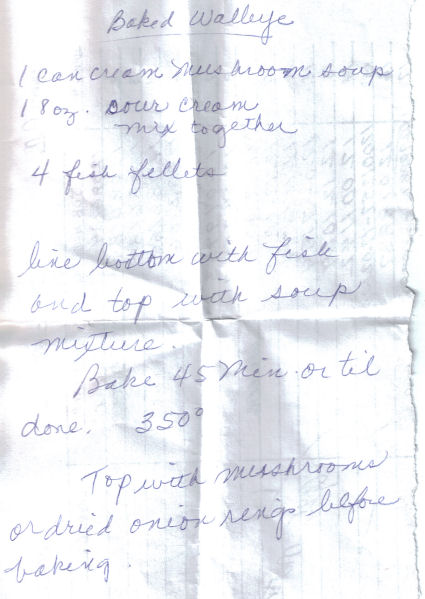 Baked Walleye
1 can cream mushroom soup
1 8oz. sour cream
mix together
4 fish fellets
line bottom with fish
and top with soup
mixture.
Bake 45 Min. or til
done. 350°
Top with musshrooms
or dried onion rings before
baking.